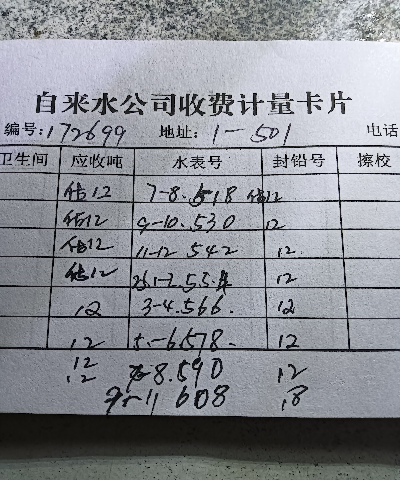 自来水公司收费计量卡片
编号:172699 地址:1-501 电话
卫生间 应收吨 水表号 封铅号 擦校
估12 7-8.518 估12
估12 9-10.530 12
估12 11-12 542 12.
估12 1-2.55 12
12 3-4.566. 12
12 5.-6.578. 12
12
12 7-8.590 12
9-11 608 18